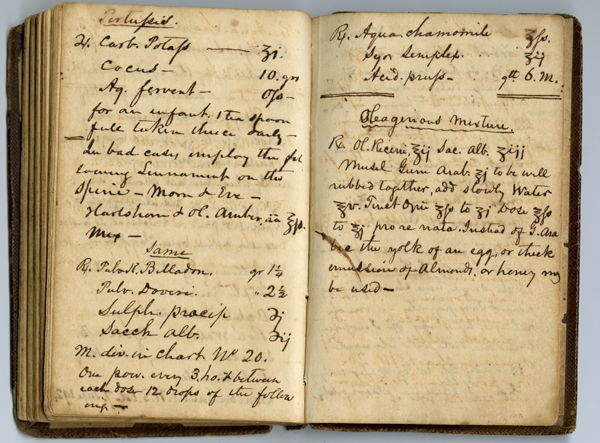 Pertussis.
℞. Carb. Potass — ʒi.
Cocus — 10. grs
Aq. fervent — O/s —
for an infant, 1 tea spoon
full taken thrice daily —
In bad cases employ the fol
evening Linnament on the
Spine — Morn & Eve —
Hartshorn & Ol. Amber, āā ℥ss.
Mix —
Same
℞. Pulv. R. Belladon. gr 1¼
Pulv. Doveri. " 2½
Sulph. precip ℈j
Sacch Alb. ℈ij
M. div. in chart No. 20.
One pow. every 3. ho. & between
each dose 12 drops of the follow
ing. —
℞. Aqua chamomile ℥ss.
Syr Simplex. ʒij
Acid. pruss — gtt 6. M.
Oleaginous Mixture.
℞. Ol. Ricini, ʒij Sac. Alb. ʒijj
Musel Gum Arab. ʒj to be well
rubbed together, add slowly Water
℥iv. Tinct Opii ʒss to ʒj Dose ℥ss
to ℥j pro re nata. Instead of G. Ara
bic the yolk of an egg, or thick
emulsion of Almonds, or honey my
be used —